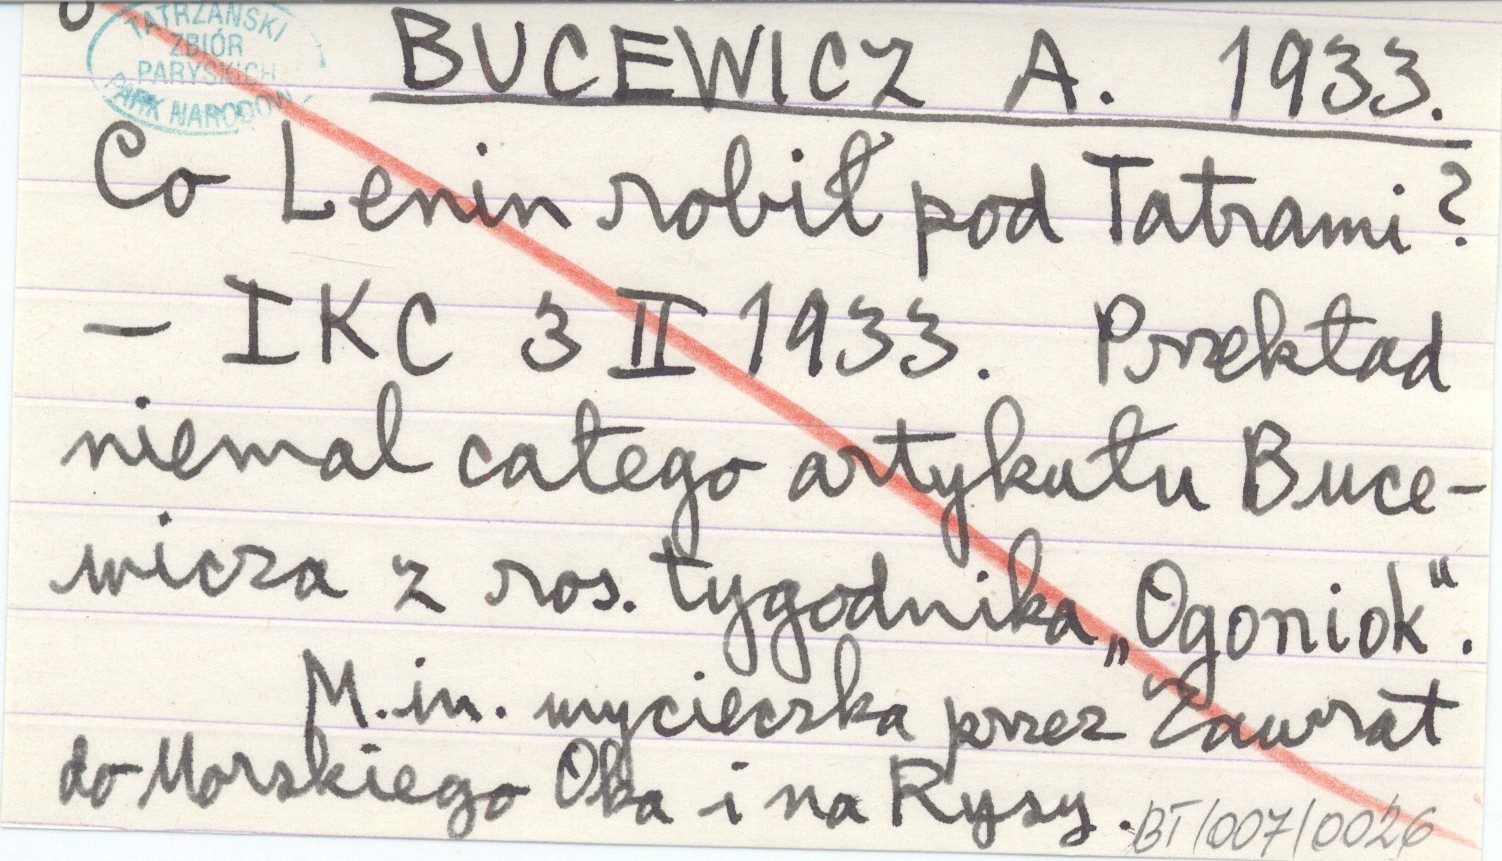 TATRZAŃSKI
ZBIÓR
PARYSKICH
PARK NARODOWY
BUCEWICZ A. 1933.
Co Lenin robił pod Tatrami?
— IKC 3 II 1933. Przekład
niemal całego artykułu Buce-
wicza z ros. tygodnika „Ogoniok".
M.in. wycieczka przez Zawrat
do Morskiego Oka i na Rysy.
BT/007/0026